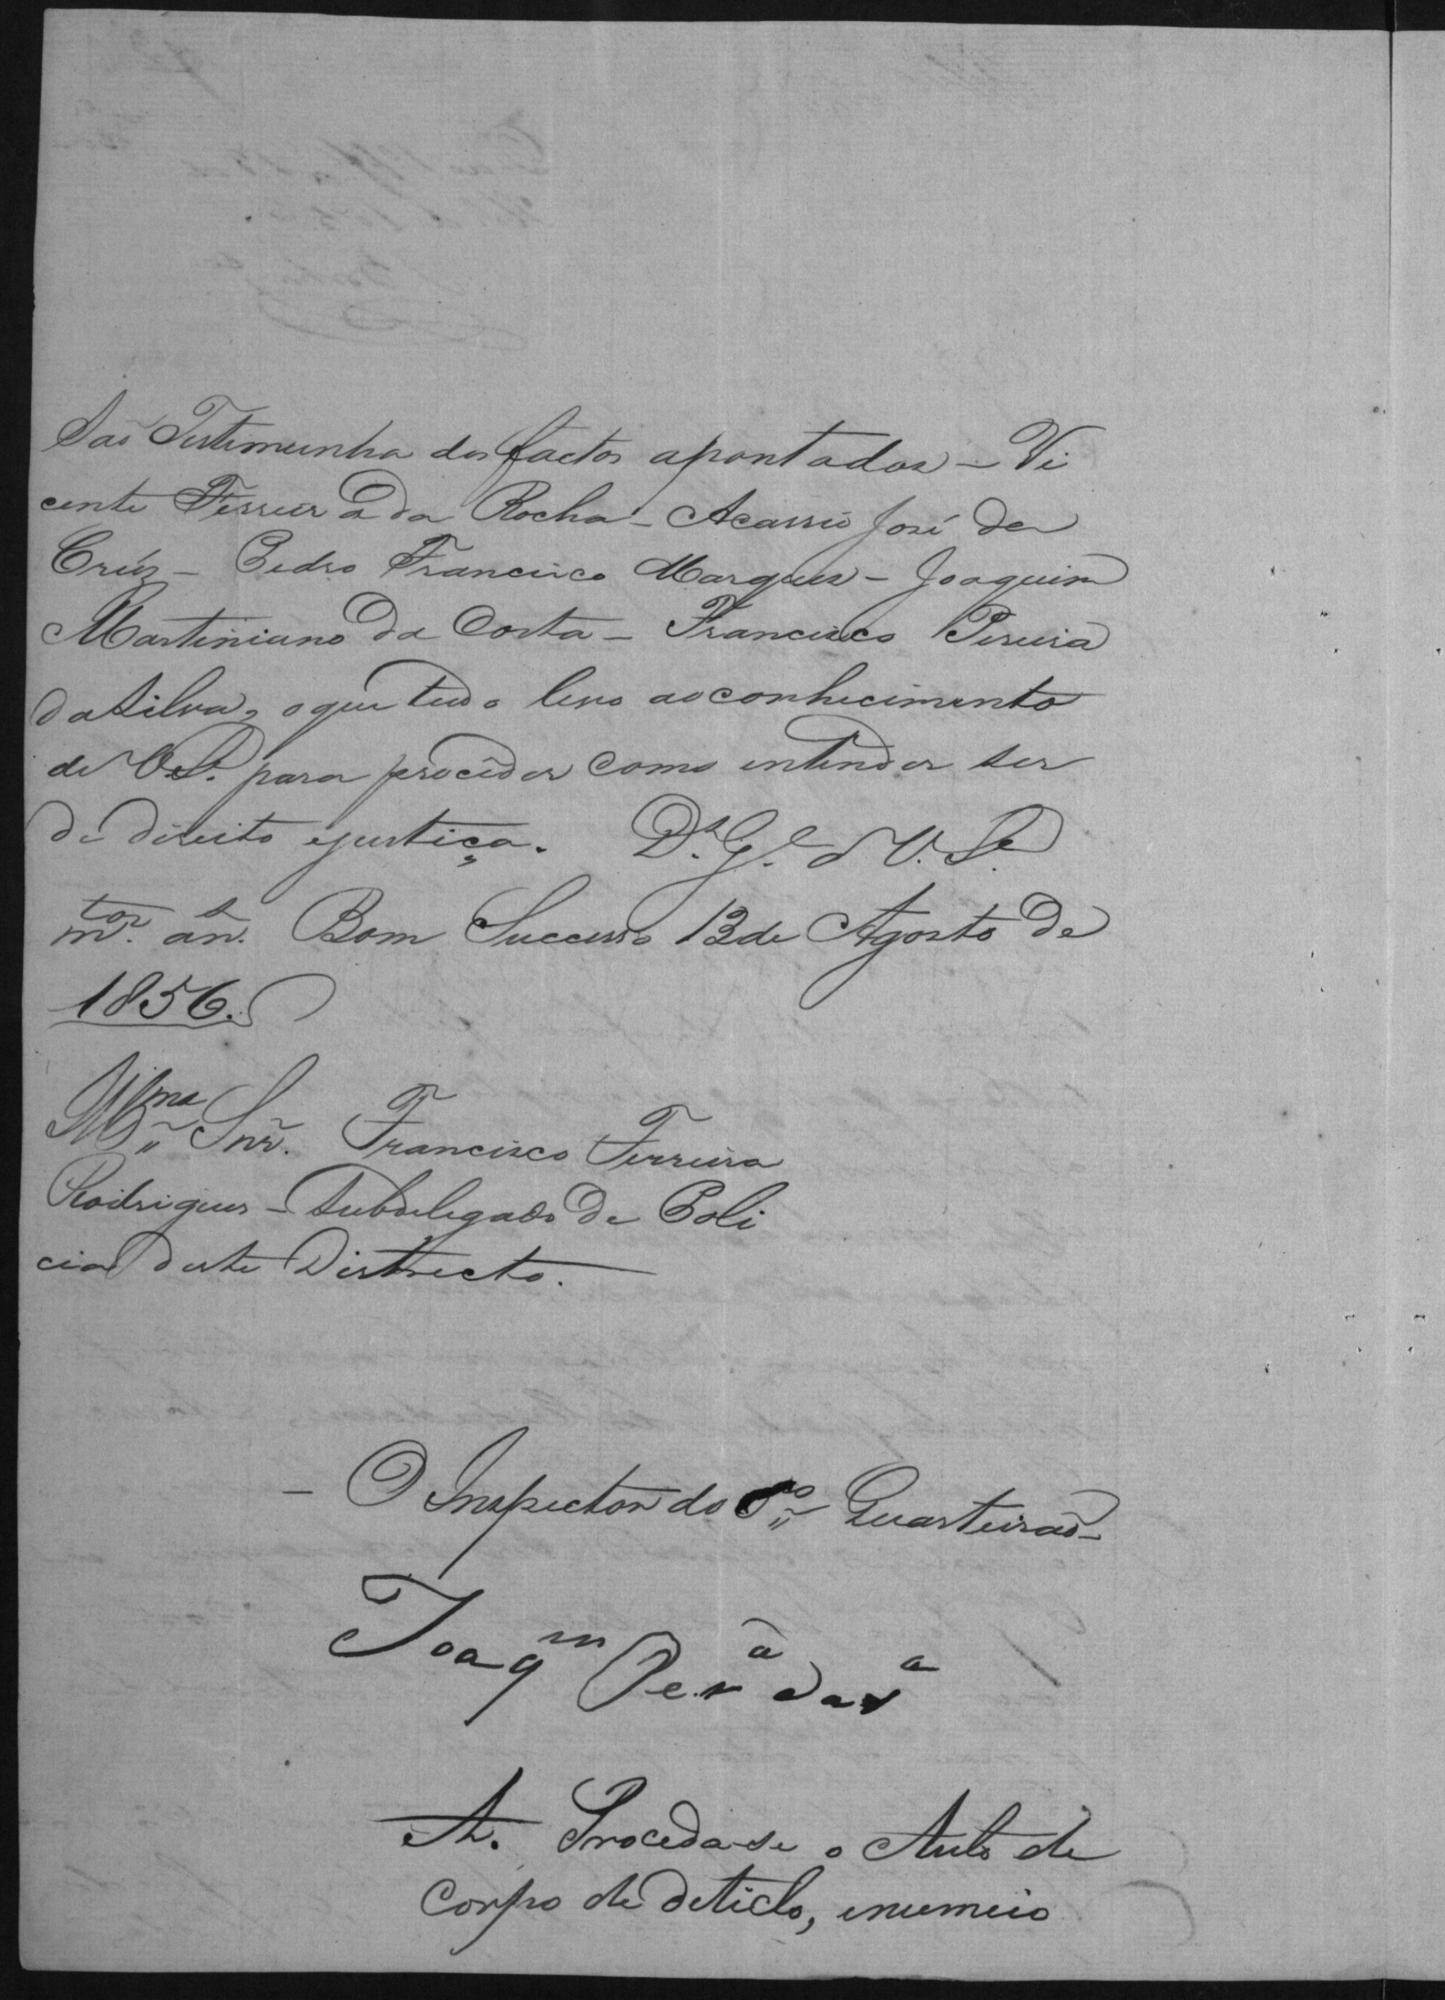 Saõ Testimunha dos factos apontados – Vi
cente Ferreira da Rocha – Acassio José da
Crúz – Pedro Francisco Marques – Joaquim
Martiniano da Costa – Francisco Pereira
da Silva, oque tudo levo ao conhecimento
de V.S.ª para proceder como entender ser
de direito ejustiça. D.s G.e a V. S.ª
m.tos an.s Bom Successo 13 de Agosto de
1856.
Ill.mo Snr. Francisco Ferreira
Rodrigues – Subdelegado de Poli
cia deste Districto.
– O Inspector do 8.º Quarteiraõ –
Joaq.m Per.ª da S.ª
A. Proceda-se o Auto de
Corpo de deticto, enumeio